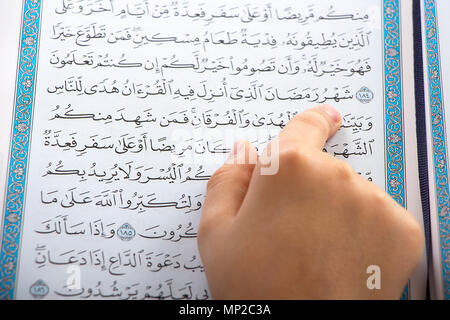 مِنكُم مَّرِيضًا أَوْ عَلَىٰ سَفَرٍ فَعِدَّةٌ مِّنْ أَيَّامٍ أُخَرَ وَعَلَى
الَّذِينَ يُطِيقُونَهُ فِدْيَةٌ طَعَامُ مِسْكِينٍ فَمَن تَطَوَّعَ خَيْرًا
فَهُوَ خَيْرٌ لَّهُ وَأَن تَصُومُوا خَيْرٌ لَّكُمْ إِن كُنتُمْ تَعْلَمُونَ
١٨٤ شَهْرُ رَمَضَانَ الَّذِي أُنزِلَ فِيهِ الْقُرْءَانُ هُدًى لِّلنَّاسِ
وَبَيِّنَ الْهُدَىٰ وَالْفُرْقَانِ فَمَن شَهِدَ مِنكُمُ
الشَّهْرَ كَانَ مَرِيضًا أَوْ عَلَىٰ سَفَرٍ فَعِدَّةٌ
كُمُ الْيُسْرَ وَلَا يُرِيدُ بِكُمُ
وَلِتُكَبِّرُوا اللَّهَ عَلَىٰ مَا
كُرُونَ ١٨٥ وَإِذَا سَأَلَكَ
دَعْوَةَ الدَّاعِ إِذَا دَعَانِ
لَعَلَّهُمْ يَرْشُدُونَ ١٨٦
alamy
Image ID: MP2C3A
www.alamy.com